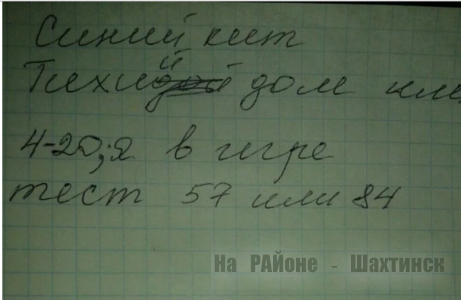 Синий кит
Тихий дом
4-20; я в игре
тест 57 или 84
На РАЙоне - Шахтинск